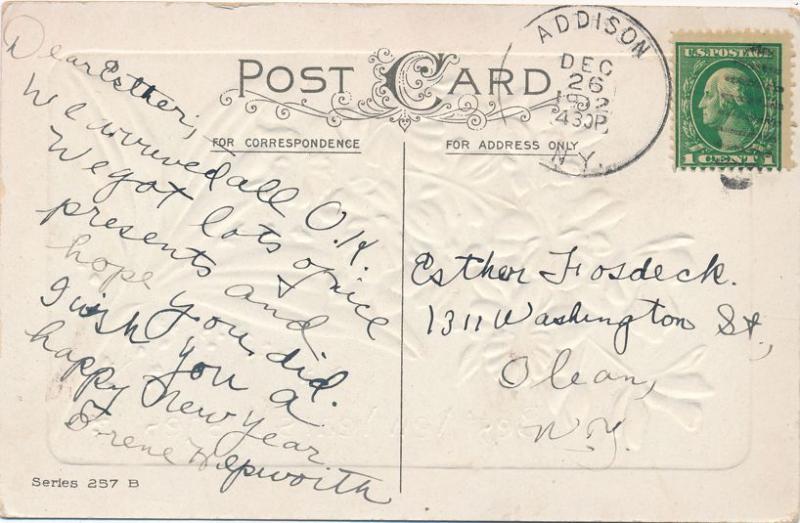 POST CARD
FOR CORRESPONDENCE
FOR ADDRESS ONLY
ADDISON
DEC
26
430P
N.Y.
U.S. POSTAGE
1 CENT 1
Dear Esther;
We arrived all O.K.
We got lots of nice
presents and
hope you did.
I wish you a
happy new year
Irene Hepworth
Esther Fosdeck.
1311 Washington St.,
Olean,
N.Y.
Series 257 B